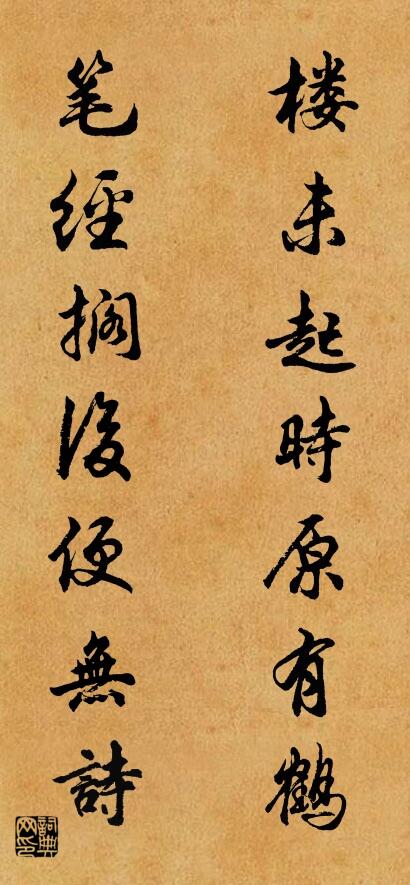 楼未起時原有鶴
笔經搁後便無詩
詞典网印